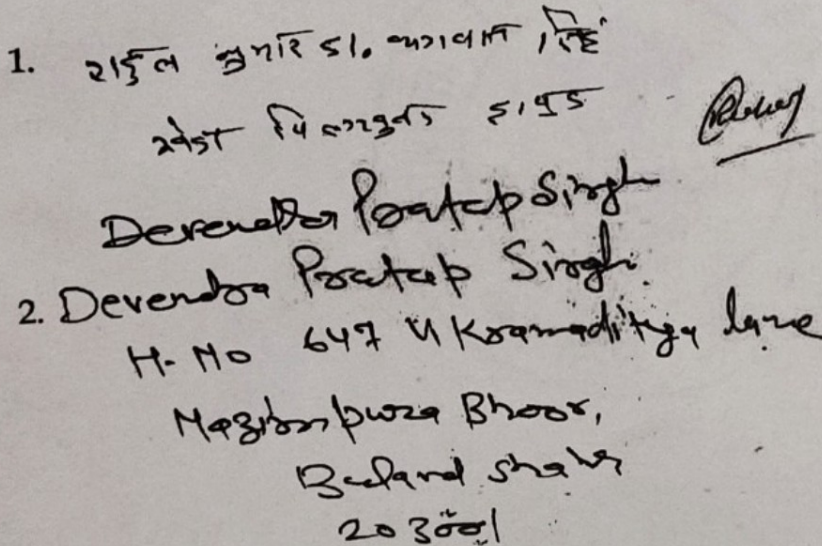 1. राहुल कुमार S/o भगवान सिंह
हापुड़
Devendra Pratap Singh
2. Devendra Pratap Singh.
H. No 647 Vikramaditya lane
Bhoor,
Buland shahr
203001